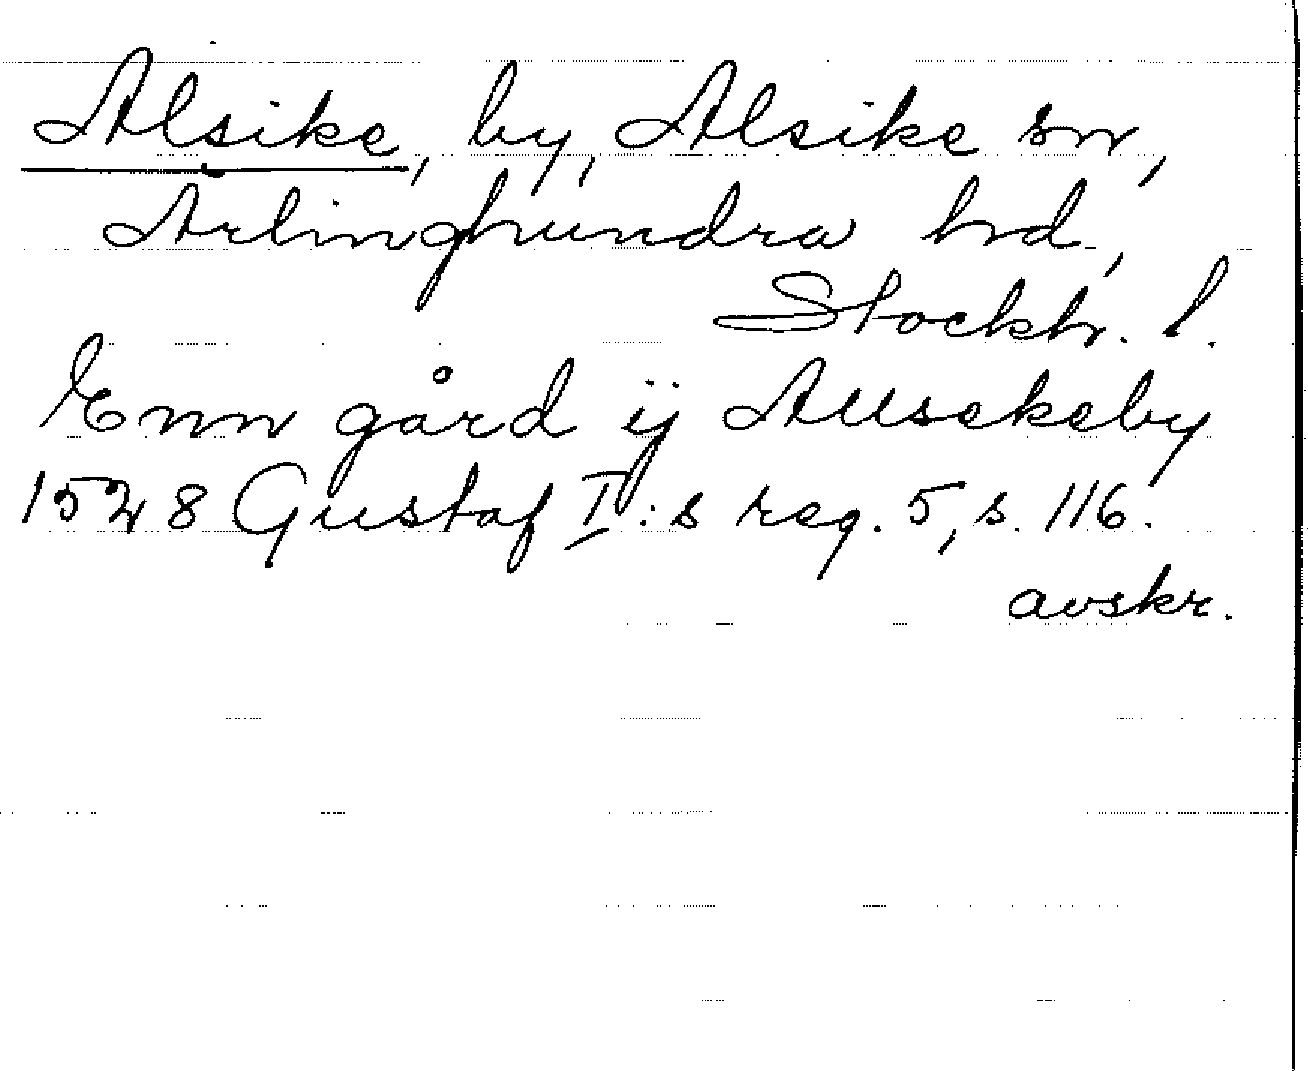 Alsike, by, Alsike sn,
Ärlinghundra hd,
Stockh. l.
Enn gård ij Allsekeby
1528 Gustaf I:s reg. 5, s. 116.
avskr.